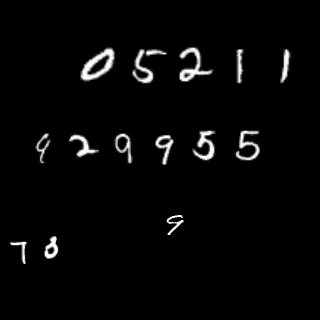 05211
929955
9
78